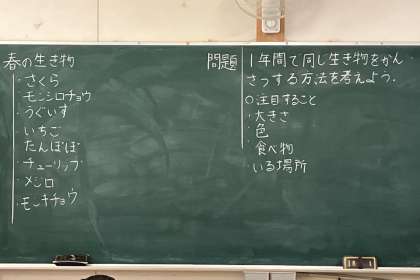 春の生き物
・さくら
・モンシロチョウ
・うぐいす
・いちご
・たんぽぽ
・チューリップ
・メジロ
・モンキチョウ
問題
1年間で同じ生き物をかん
さつする方法を考えよう.
○注目すること
・大きさ
・色
・食べ物
・いる場所